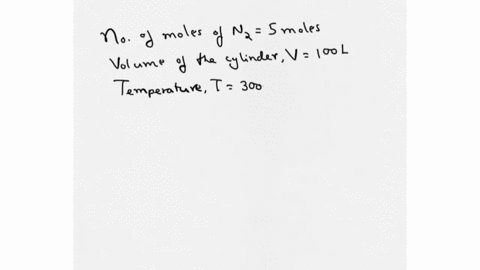 No. of moles of N₂ = 5 moles
Volume of the cylinder, V = 100L
Temperature, T = 300